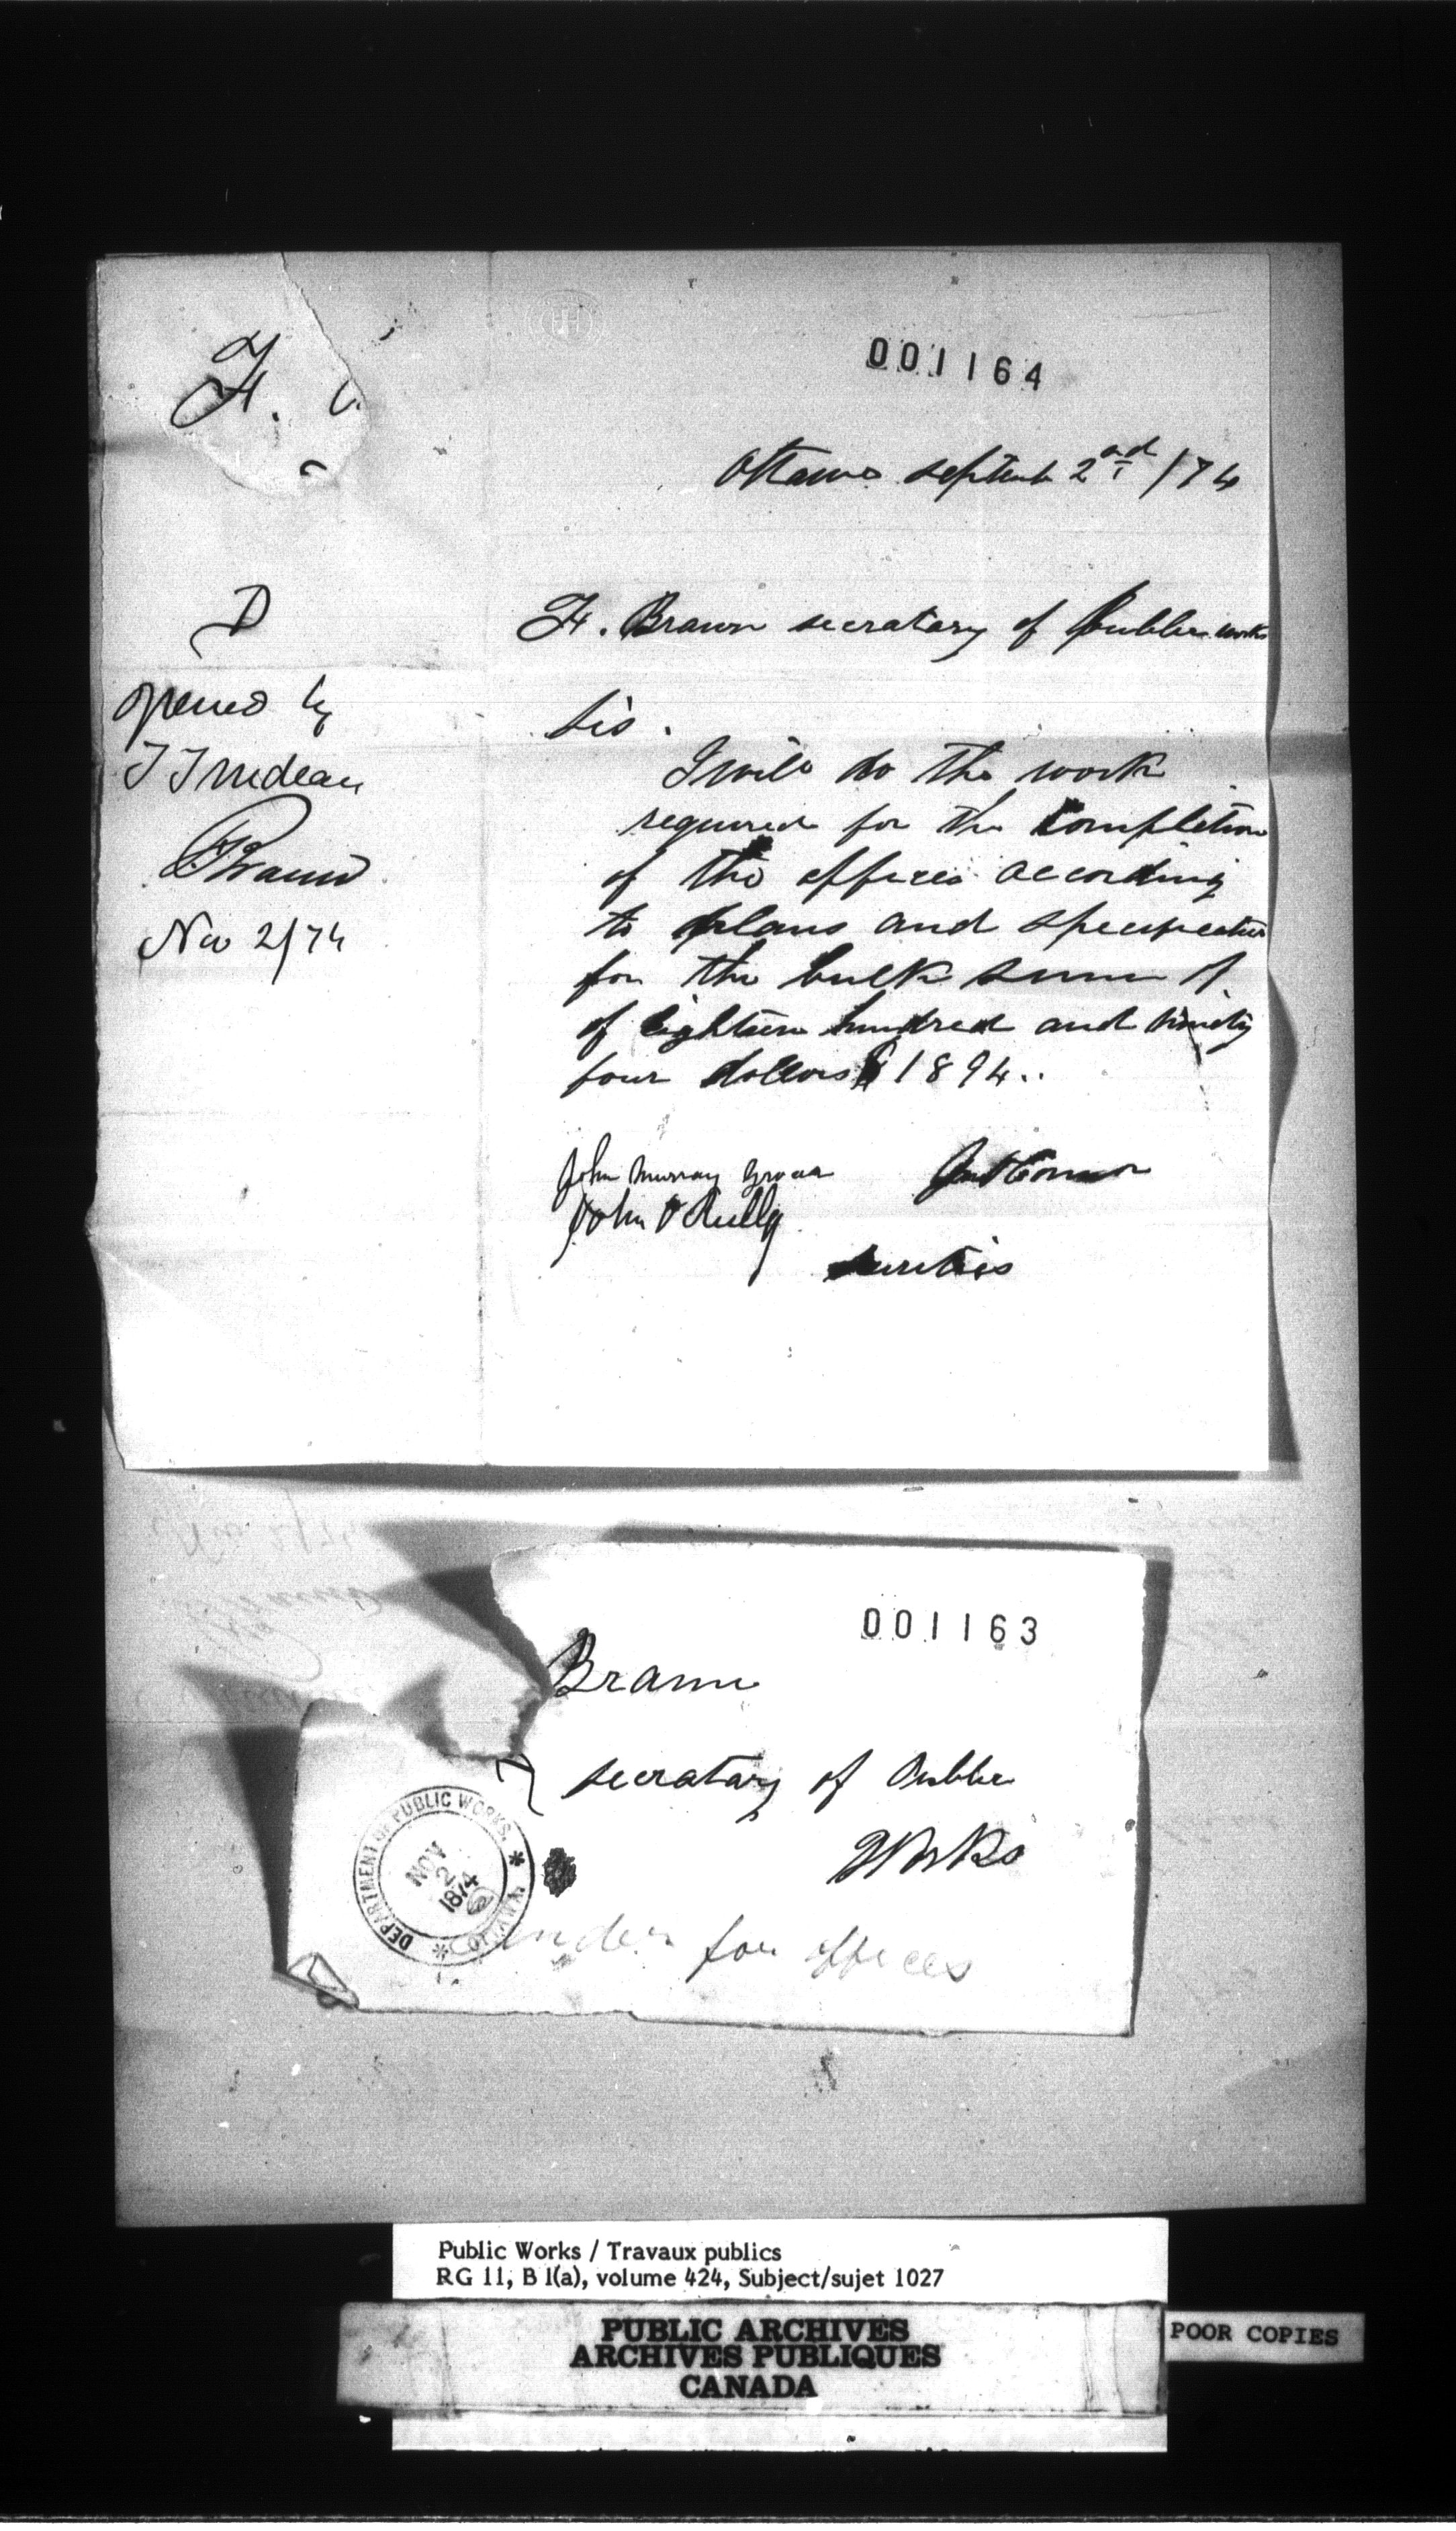 001164
Ottawa septemb 2nd /74
F. Brawn secratary of Public works
Sir.
I will do the work
required for the completion
of the offices according
to plans and specification
for the bulk sum of
of eighteen hundred and ninety
four dollars $1894..
John Murray
John O Reilly
Jas OConnor
sureties
F.
D
opened by
T Trudeau
F Braun
Nov 2/74
001163
Braun
secratary of Public
Works
DEPARTMENT OF PUBLIC WORKS.
* OTTAWA. *
NOV
2
1874
ender for offices
Public Works / Travaux publics
RG 11, B 1(a), volume 424, Subject/sujet 1027
PUBLIC ARCHIVES
ARCHIVES PUBLIQUES
CANADA
POOR COPIES